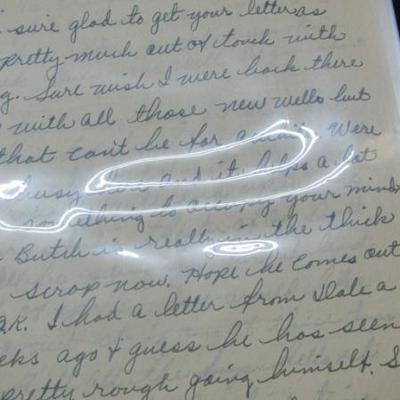 sure glad to get your letter as
pretty much out of touch with
g. Sure wish I were back there
with all those new wells but
that cant be for awhile. Were
busy here and it helps a lot
something to occupy your mind.
Butch is really in the thick
scrap now. Hope he comes out
O.K. I had a letter from Dale a
eks ago & guess he has seen
pretty rough going himself. S